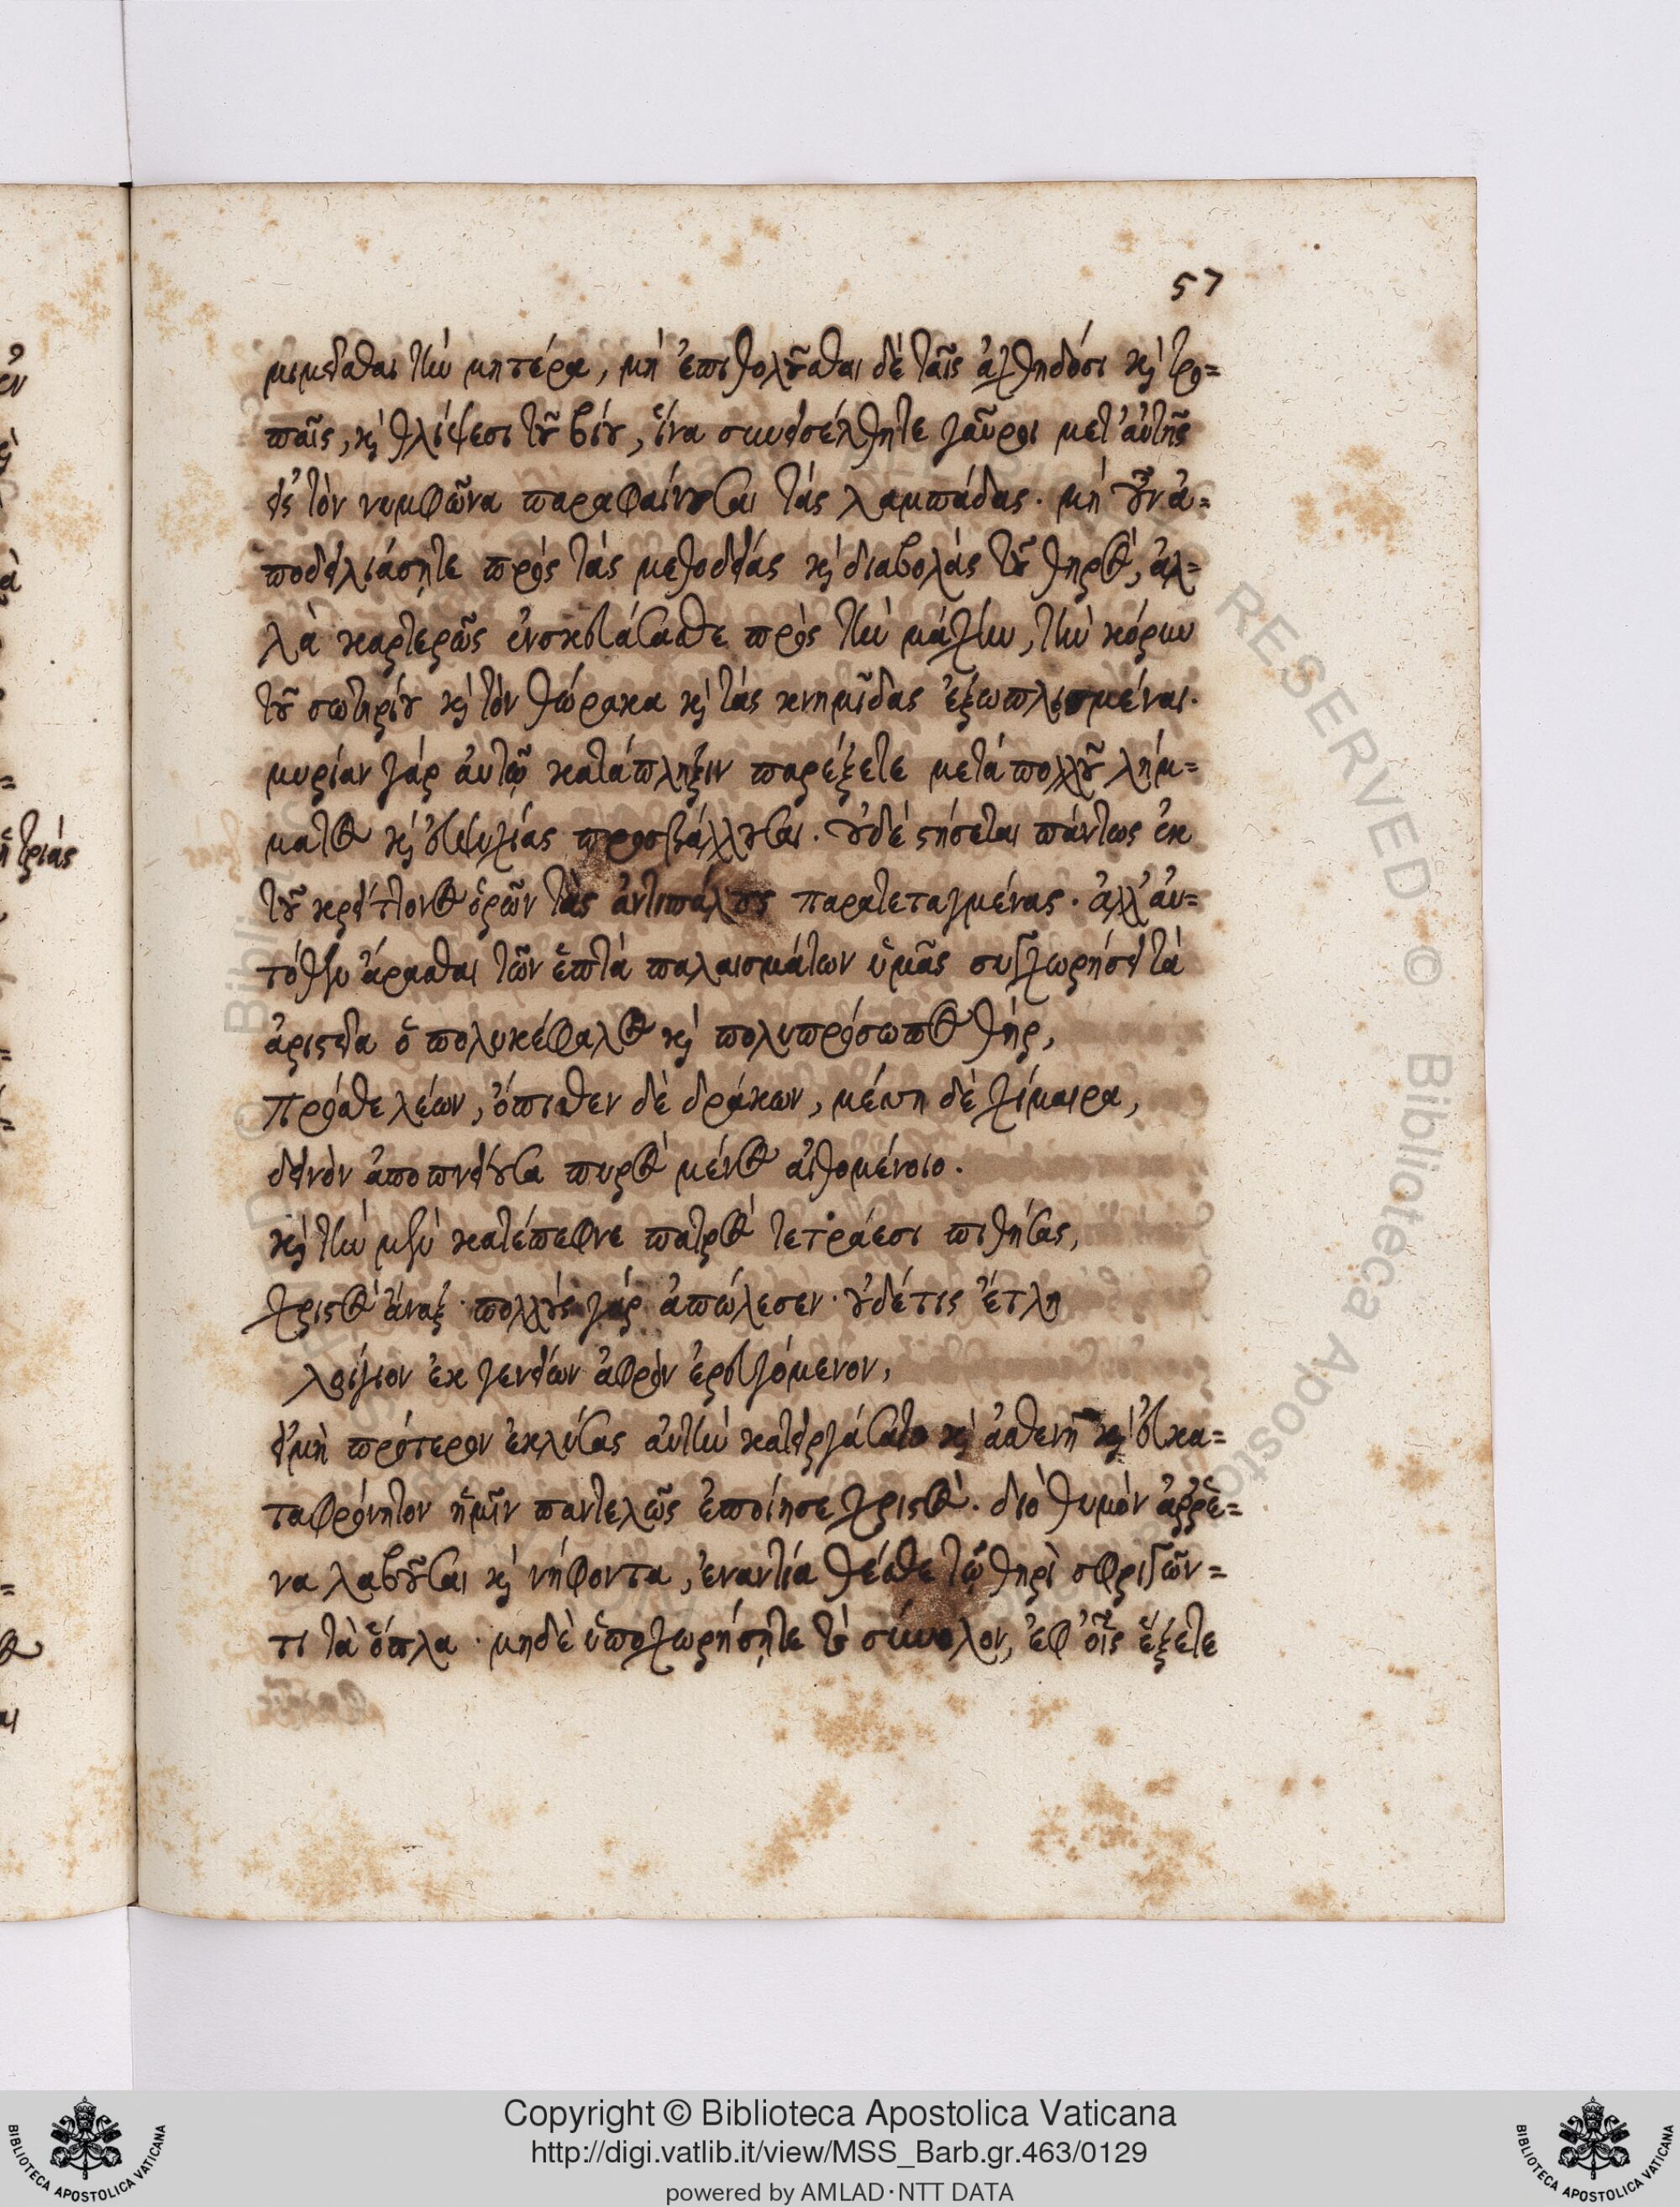 57
μιμεῖσθαι τὴν μητέρα, μὴ ἐπιθολοῦσθαι δὲ ταῖς ἀχθηδόσι καὶ τρο=
παῖς, καὶ θλίψεσι τοῦ βίου, ἵνα συνεισέλθητε γαῦροι μετ' αὐτῆς
εἰς τὸν νυμφῶνα παραφαίνουσαι τὰς λαμπάδας. μὴ οὖν ἀ=
ποδειλιάσητε πρὸς τὰς μεθοδείας καὶ διαβολὰς τοῦ θηρός, ἀλ=
λὰ καρτερῶς ἐνσκευάσασθε πρὸς τὴν μάχην, τὴν κόρυν
τοῦ σωτηρίου καὶ τὸν θώρακα καὶ τὰς κνημῖδας ἐξωπλισμέναι.
μυρίαν γάρ αὐτῷ κατάπληξιν παρέξετε μετὰ πολλοῦ λήμ=
ματος καὶ εὐψυχίας προσβάλλουσαι. οὐδὲ στήσεται πάντως ἐκ
τοῦ κρείττονος ὁρῶν τὰς ἀντιπάλους παρατεταγμένας. ἀλλ' αὐ=
τόθεν ἄρασθαι τῶν ἑπτὰ παλαισμάτων ὑμᾶς συγχωρήσει τὰ
ἀριστεῖα ὁ πολυκέφαλος καὶ πολυπρόσωπος θήρ,
πρόσθε λέων, ὄπισθεν δὲ δράκων, μέση δὲ χίμαιρα,
δεινὸν ἀποπνείουσα πυρὸς μένος αἰθομένοιο.
καὶ τὴν μὲν κατέπεφνε πατρὸς τετράεσι πιθήσας,
χριστὸς ἄναξ. πολλοὺς γάρ ἀπώλεσεν. οὐδέ τις ἔτλη
λοίγιον ἐκ γενείων ἀφρὸν ἐρευγόμενον,
εἰ μὴ πρότερον ἐκλύσας αὐτὴν κατειργάσατο καὶ ἀσθενῆ καὶ εὐκα=
ταφρόνητον ἡμῖν παντελῶς ἐποίησε χριστός. διὸ θυμὸν ἄῤῥε=
να λαβοῦσαι καὶ νήφοντα, ἐναντία θέσθε τῷ θηρὶ σφριγῶν=
τι τὰ ὅπλα. μηδὲ ὑποχωρήσητε τὸ σύνολον, ἐφ' οἷς ἕξετε
Copyright © Biblioteca Apostolica Vaticana
http://digi.vatlib.it/view/MSS_Barb.gr.463/0129
powered by AMLAD·NTT DATA
BIBLIOTECA APOSTOLICA VATICANA
BIBLIOTECA APOSTOLICA VATICANA